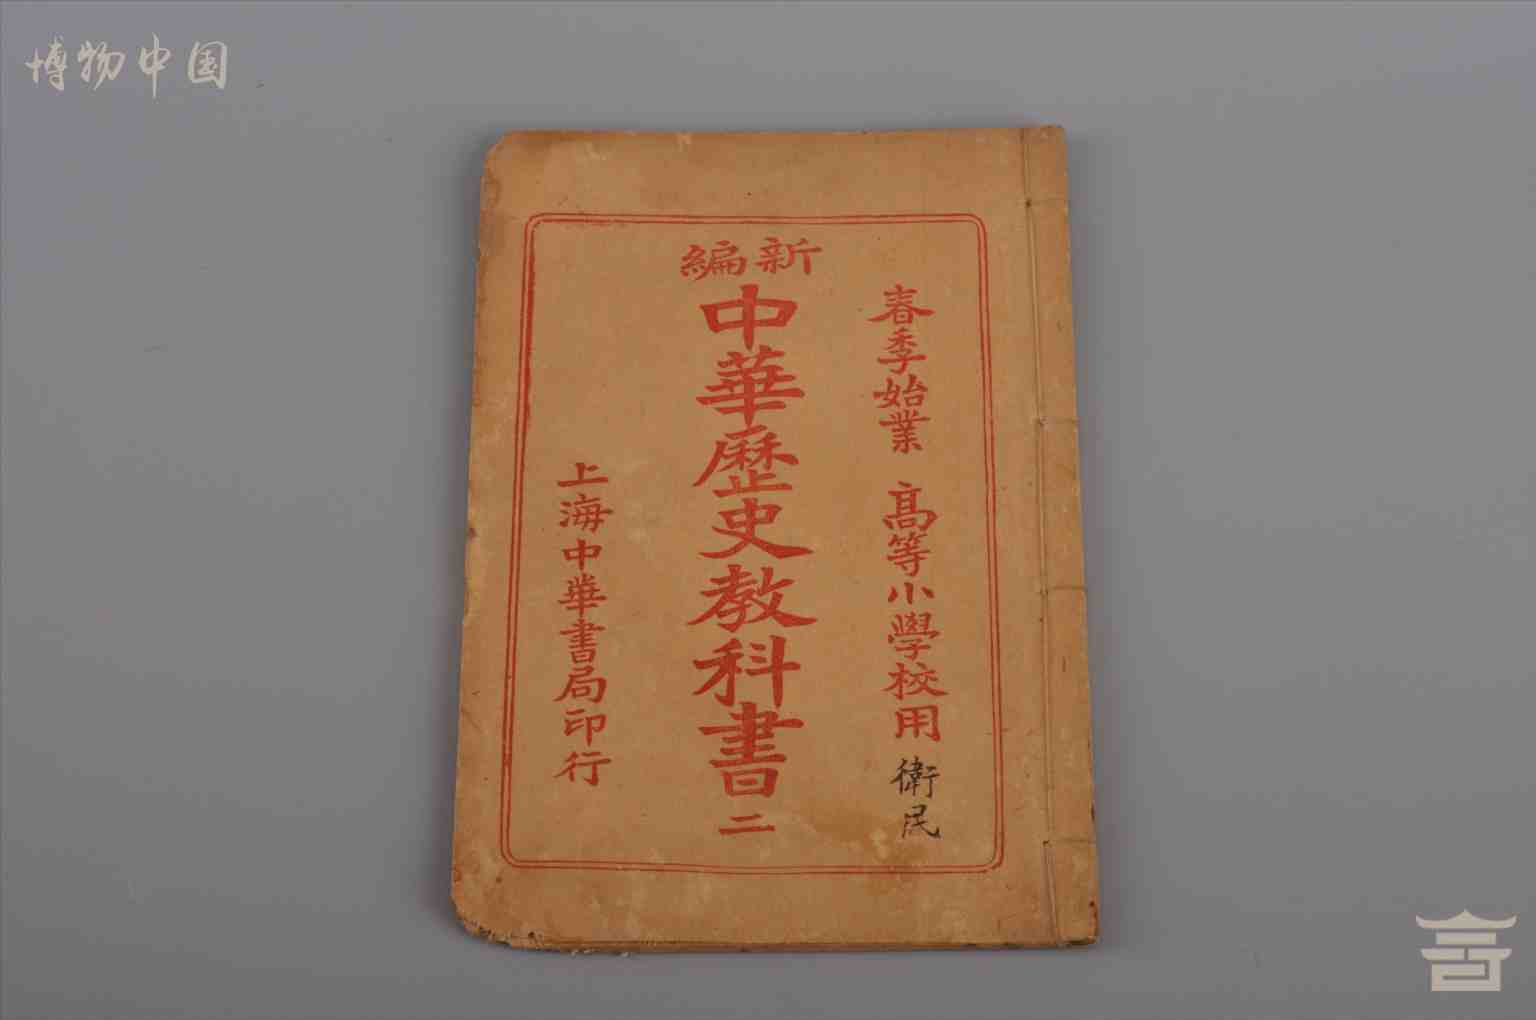 博物中国
春季始業 高等小學校用
衛民
新編
中華歷史教科書 二
上海中華書局印行